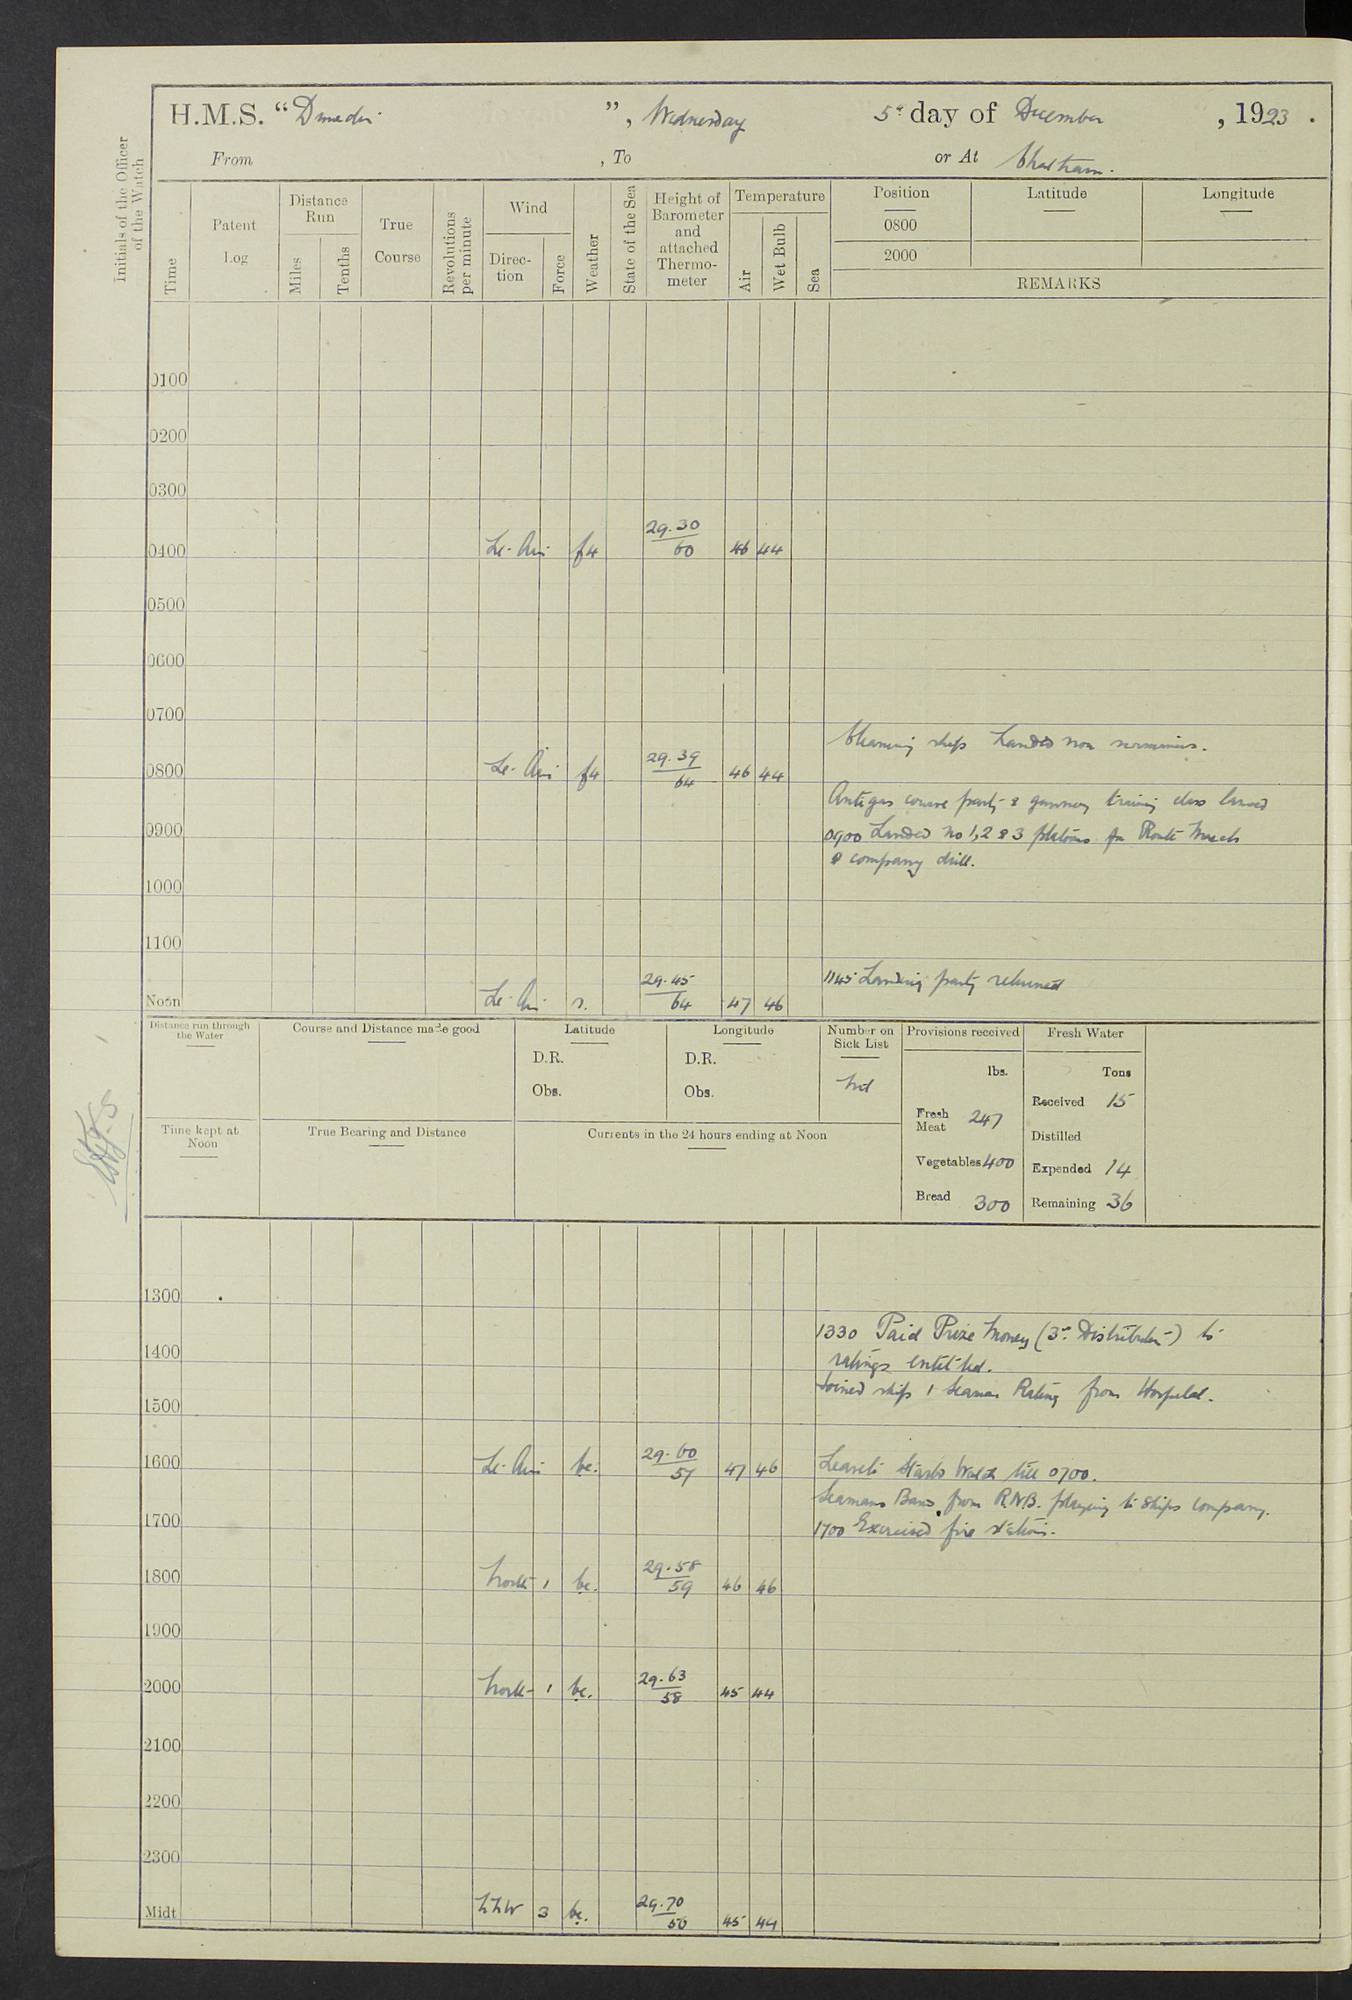 H.M.S. “Dunedin”, Wednesday 5th day of December, 1923.
From , To or At Chatham.
Initials of the Officer of the Watch
Time
Patent Log
Distance Run
Miles
Tenths
True Course
Revolutions per minute
Wind
Direction
Force
Weather
State of the Sea
Height of Barometer and attached Thermometer
Temperature
Air
Wet Bulb
Sea
Position Latitude Longitude
0800
2000
REMARKS
0100
0200
0300
0400 Lt. Airs f4 29.30/60 46 44
0500
0600
0700
Cleaning ship. Landed non swimmers.
0800 Lt. Airs f4 29.39/64 46 44
Antigas course party & gunnery training class landed
0900 0900 Landed No 1, 2 & 3 platoons for Route March
& company drill.
1000
1100
1145 Landing party returned
Noon Lt. Airs r. 29.45/64 47 46
Distance run through the Water
Course and Distance made good
Latitude
D.R.
Obs.
Longitude
D.R.
Obs.
Number on Sick List
Provisions received
lbs.
Fresh Meat 247
Vegetables 400
Bread 300
Fresh Water
Tons
Received 15
Distilled
Expended 14
Remaining 36
Time kept at Noon
True Bearing and Distance
Currents in the 24 hours ending at Noon
1300
1330 Paid Prize Money (3rd Distribution) to
1400 ratings entitled.
Joined ship 1 Seaman Rating from Hospital.
1500
1600 Lt. Airs bc. 29.60/57 47 46 Leave to Starbd Watch till 0700.
Seamans Band from R.N.B. playing to Ships company.
1700 1700 Exercised fire stations.
1800 North 1 bc. 29.58/59 46 46
1900
2000 North 1 bc. 29.63/58 45 44
2100
2200
2300
Midt NNW 3 bc. 29.70/56 45 44